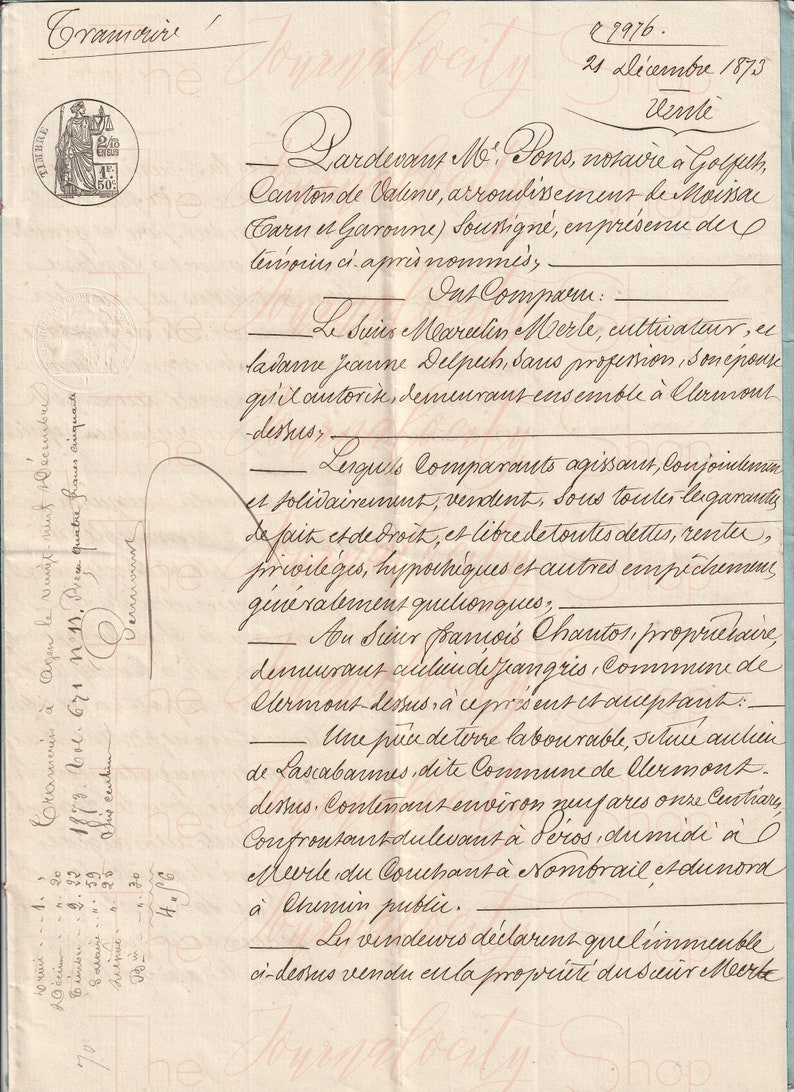 Transcrire
n 9976.
21 Décembre 1873
Vente
TIMBRE
2/10
EN SUS
1F.
50c.
Pardevant Me. Pons, notaire à Golfech,
Canton de Valence, arrondissement de Moissac
(Tarn et Garonne) Soussigné, en présence des
témoins ci-après nommés,
Ont Comparu:
Le Sieur Marcelin Merle, cultivateur, et
la dame Jeanne Delpech, sans profession, son épouse
qu'il autorise, demeurant ensemble à Clermont
-dessus,
Lesquels Comparants agissant, Conjointement
et solidairement, vendent, sous toutes les garanties
de fait et de droit, et libre de toutes dettes, rentes,
privilèges, hypothèques et autres empêchements
généralement quelconques,
Au Sieur françois Chantos, propriétaire,
demeurant au lieu de Jeangris, Commune de
Clermont-dessus, à ce présent et acceptant:
Une pièce de terre labourable, située au lieu
de Lascabannes, dite Commune de Clermont-
dessus, Contenant environ neuf ares onze Centiares,
Confrontant du levant à Péros, du midi à
Merle, du Couchant à Nombrail, et du nord
à Chemin public.
Les vendeurs déclarent que l'immeuble
ci-dessus vendu est la propriété du Sieur Merle
Transcrit à Agen le vingt neuf Décembre
1873. Vol. 671 n° 13. Reçu quatre francs cinquante
Six centimes
Décime
Timbre
Salaire
4.56
70
The Journalocity Shop